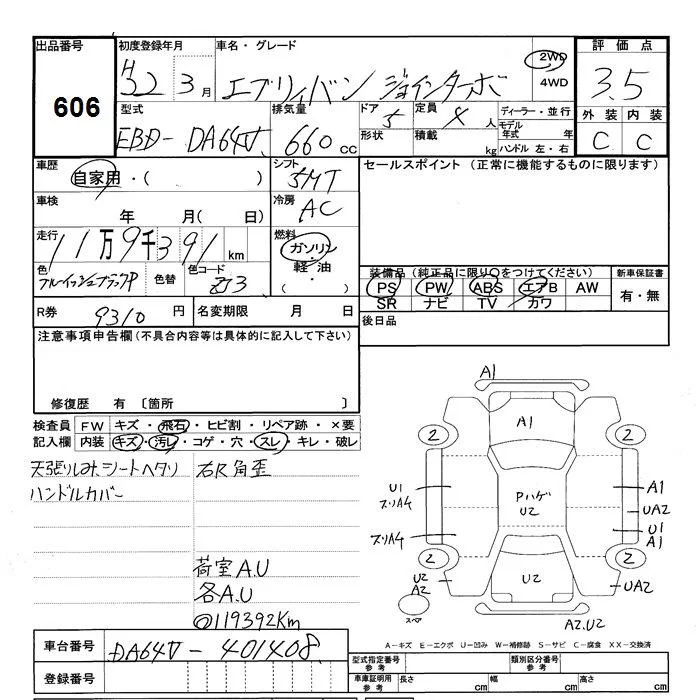 出品番号
606
初度登録年月
H22 3月
車名・グレード
エブリィバン ジョインターボ
2WD
4WD
評価点
3.5
外装 内装
C C
型式
EBD-DA64V
排気量
660 cc
ドア
5
形状
定員
4人
積載 kg
ディーラー・並行
モデル年式 年
ハンドル 左・右
車歴
自家用・( )
シフト
5MT
セールスポイント(正常に機能するものに限ります)
車検
年 月( 日)
冷房
AC
走行
11万9千391 km
燃料
ガソリン・
軽油・
( )
色
ブルーイッシュブラックP
色替
色コード
ZJ3
装備品(純正品に限り○をつけてください)
PS PW ABS エアB AW
SR ナビ TV カワ
新車保証書
有・無
R券
9310円
名変期限 月 日
後日品
注意事項申告欄(不具合内容等は具体的に記入して下さい)
修復歴 有 〔箇所 〕
検査員記入欄
FW キズ・飛石・ヒビ割・リペア跡・×要
内装 キズ・汚レ・コゲ・穴・スレ・キレ・破レ
天張りしみ シートヘタリ 右R角歪
ハンドルカバー
荷室A.U
各A.U
@119392Km
A1
A1
2 2
U1
スリA4
PハゲU2
A1
UA2
U1
A1
スリA4
2 2
U2
A2
U2
UA2
スペア
A2.U2
A-キズ E-エクボ U-凹み W-補修跡 S-サビ C-腐食 XX-交換済
車台番号
DA64V-401408
登録番号
型式指定番号
参考
類別区分番号
参考
車庫証明用
参考
長さ cm
幅 cm
高さ cm